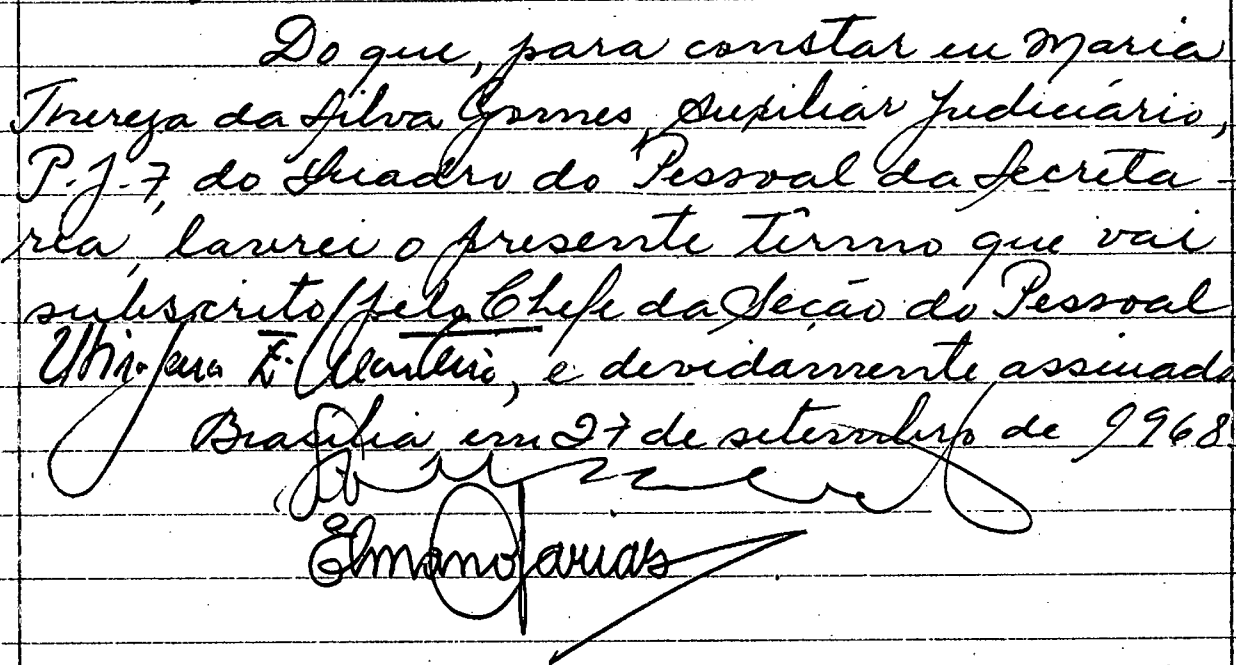 Do que, para constar eu Maria
Thereza da Silva Gomes, Auxiliar Judiciário,
P.J.7, do Quadro do Pessoal da Secreta-
ria, lavrei o presente têrmo que vai
subscrito pelo Chefe da Seção do Pessoal
e devidamente assinado
Brasília em 27 de setembro de 1968
Elmano Farias